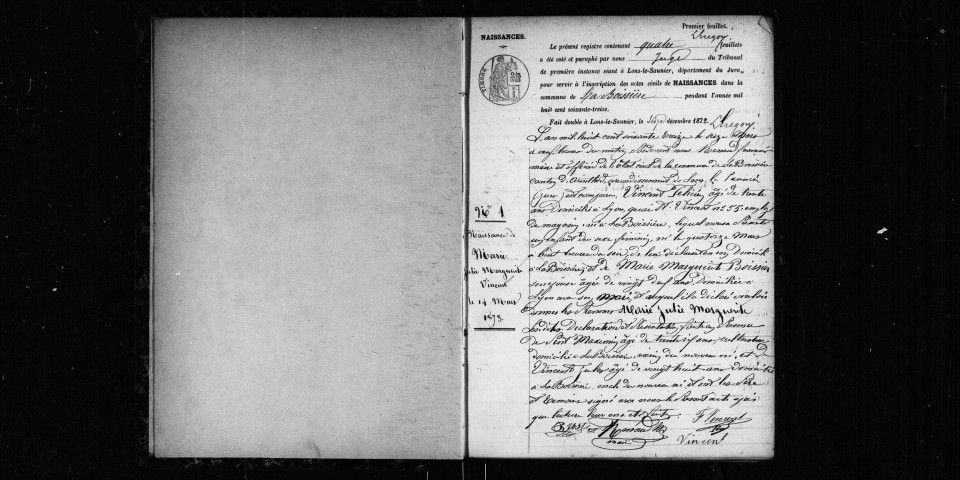 Premier feuillet.
NAISSANCES.
Le présent registre contenant quatre feuillets
a été coté et paraphé par nous Juge du Tribunal
de première instance séant à Lons-le-Saunier, département du Jura,
pour servir à l'inscription des actes civils de NAISSANCES dans la
commune de La Boissière pendant l'année mil
huit cent soixante-treize.
Fait double à Lons-le-Saunier, le seize décembre 1872.
TIMBRE
No 1
Naissance de
Marie
Julie Marguerite
Vincent
le 14 Mars
1873
L'an mil huit cent soixante treize le seize Mars
à neuf heures du matin
maire et officier de l'état civil de la commune de La Boissière
canton d'Arinthod, arrondissement de Lons
(Jura) est comparu, Vincent âgé de trente
ans domicilié à Lyon, quai St Vincent no 55 employé
de magasin, né à La Boissière, lequel nous a présenté
un enfant du sexe féminin, né le quatorze Mars
à huit heures du soir, de lui déclarant en son domicile
à La Boissière, et de Marie Marguerite Boissier
son épouse âgée de vingt ans domiciliée à
Lyon avec son mari, et auquel il a déclaré vouloir
donner les prénoms Marie Julie Marguerite
déclaration et présentation faites en présence
de âgé de trente ans, cultivateur
domicilié à La Boissière, voisin du nouveau né, et de
Vincent Jules âgé de vingt huit ans domicilié
à La Boissière, oncle du nouveau né et ont les père
et témoins signé avec nous le présent acte après
que lecture leur en a été faite
F Vincent
maire
Vincent